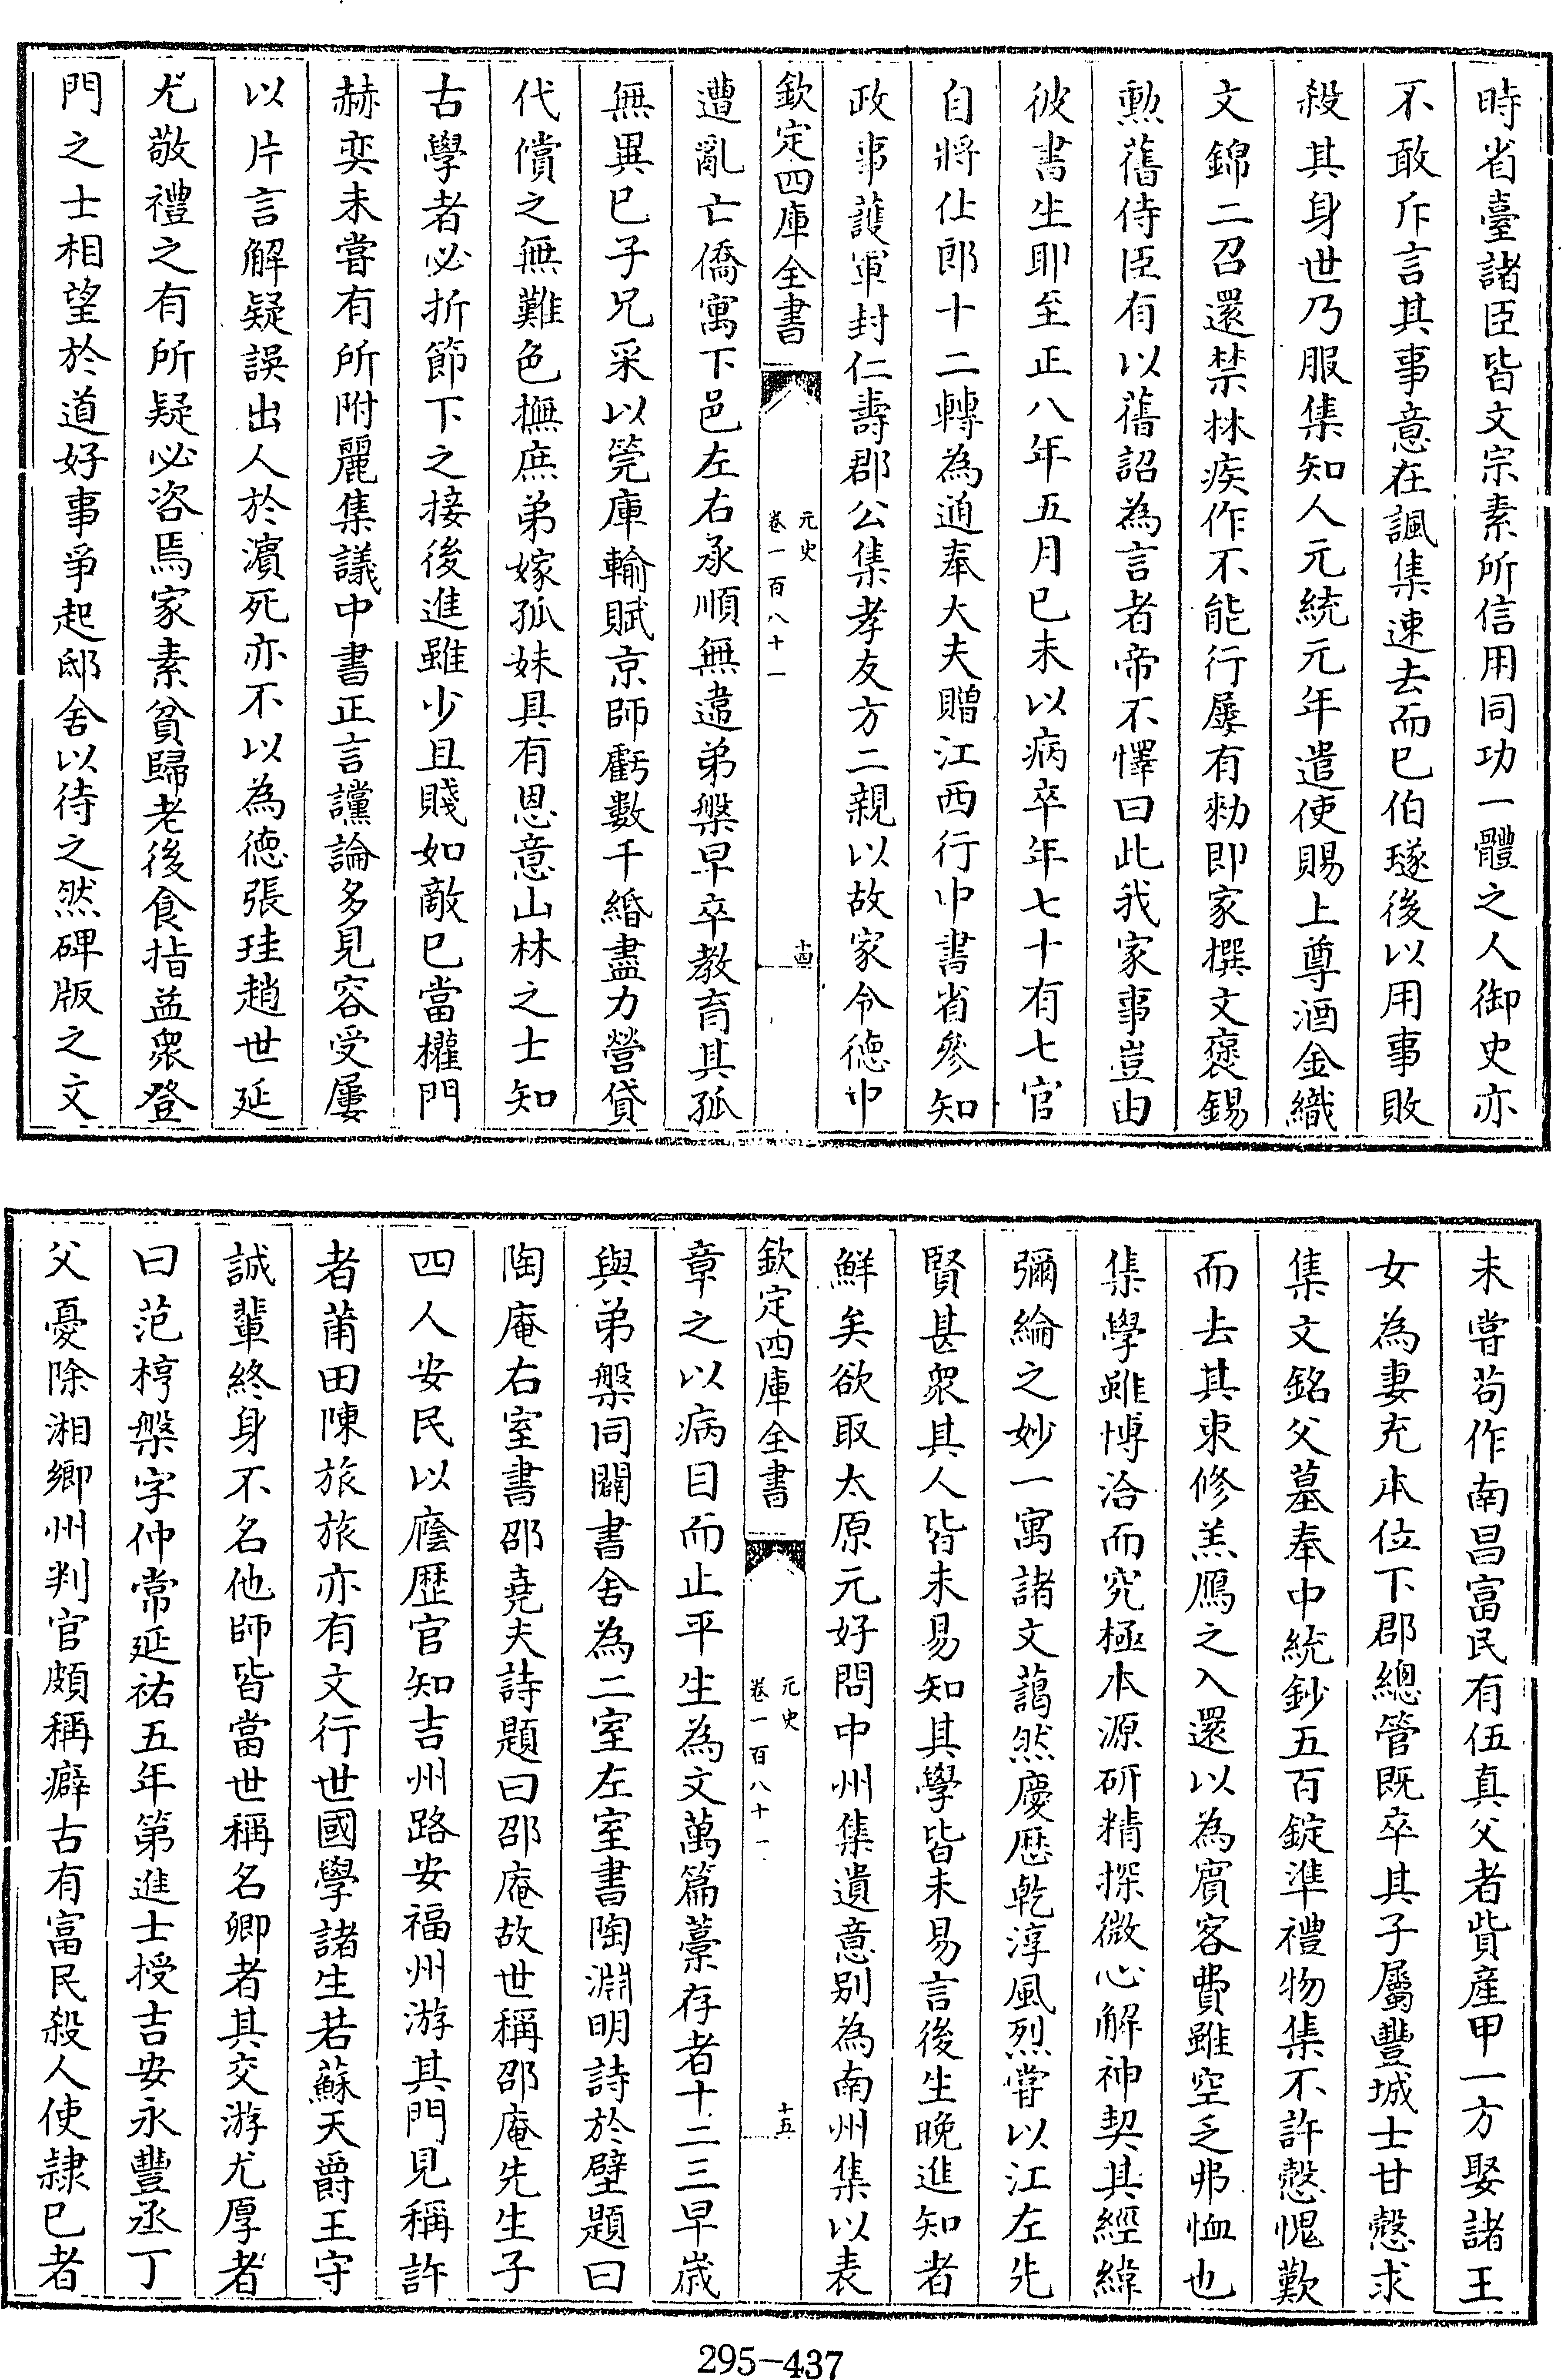 時省臺諸臣皆文宗素所信用同功一體之人御史亦
不敢斥言其事意在諷集速去而已伯璲後以用事敗
殺其身世乃服集知人元統元年遣使賜上尊酒金織
文錦二召還禁林疾作不能行屢有勑即家撰文褒錫
勲舊侍臣有以舊詔為言者帝不懌曰此我家事豈由
彼書生耶至正八年五月已未以病卒年七十有七官
自將仕郎十二轉為通奉大夫贈江西行中書省參知
政事護軍封仁壽郡公集孝友方二親以故家令徳中
欽定四庫全書
元史
卷一百八十一
十四
遭亂亡僑寓下邑左右承順無違弟槃早卒教育其孤
無異已子兄采以筦庫輸賦京師虧數千緡盡力營貸
代償之無難色撫庶弟嫁孤妹具有恩意山林之士知
古學者必折節下之接後進雖少且賤如敵已當權門
赫奕未嘗有所附麗集議中書正言讜論多見容受屢
以片言解疑誤出人於濵死亦不以為徳張珪趙世延
尤敬禮之有所疑必咨焉家素貧歸老後食指益衆登
門之士相望於道好事爭起邸舍以待之然碑版之文
未嘗茍作南昌富民有伍真父者貲産甲一方娶諸王
女為妻充本位下郡總管既卒其子屬豐城士甘慤求
集文銘父墓奉中統鈔五百錠準禮物集不許慤愧歎
而去其束修羔鴈之入還以為賓客費雖空乏弗恤也
集學雖博洽而究極本源研精探微心解神契其經緯
彌綸之妙一寓諸文藹然慶厯乾淳風烈嘗以江左先
賢甚衆其人皆未易知其學皆未易言後生晚進知者
鮮矣欲取太原元好問中州集遺意别為南州集以表
欽定四庫全書
元史
卷一百八十一
十五
章之以病目而止平生為文萬篇藁存者十二三早嵗
與弟槃同闢書舍為二室左室書陶淵明詩於壁題曰
陶庵右室書邵堯夫詩題曰邵庵故世稱邵庵先生子
四人安民以廕歴官知吉州路安福州游其門見稱許
者莆田陳旅旅亦有文行世國學諸生若蘇天爵王守
誠輩終身不名他師皆當世稱名卿者其交游尤厚者
曰范梈槃字仲常延祐五年第進士授吉安永豐丞丁
父憂除湘鄉州判官頗稱癖古有富民殺人使隷已者
295-437